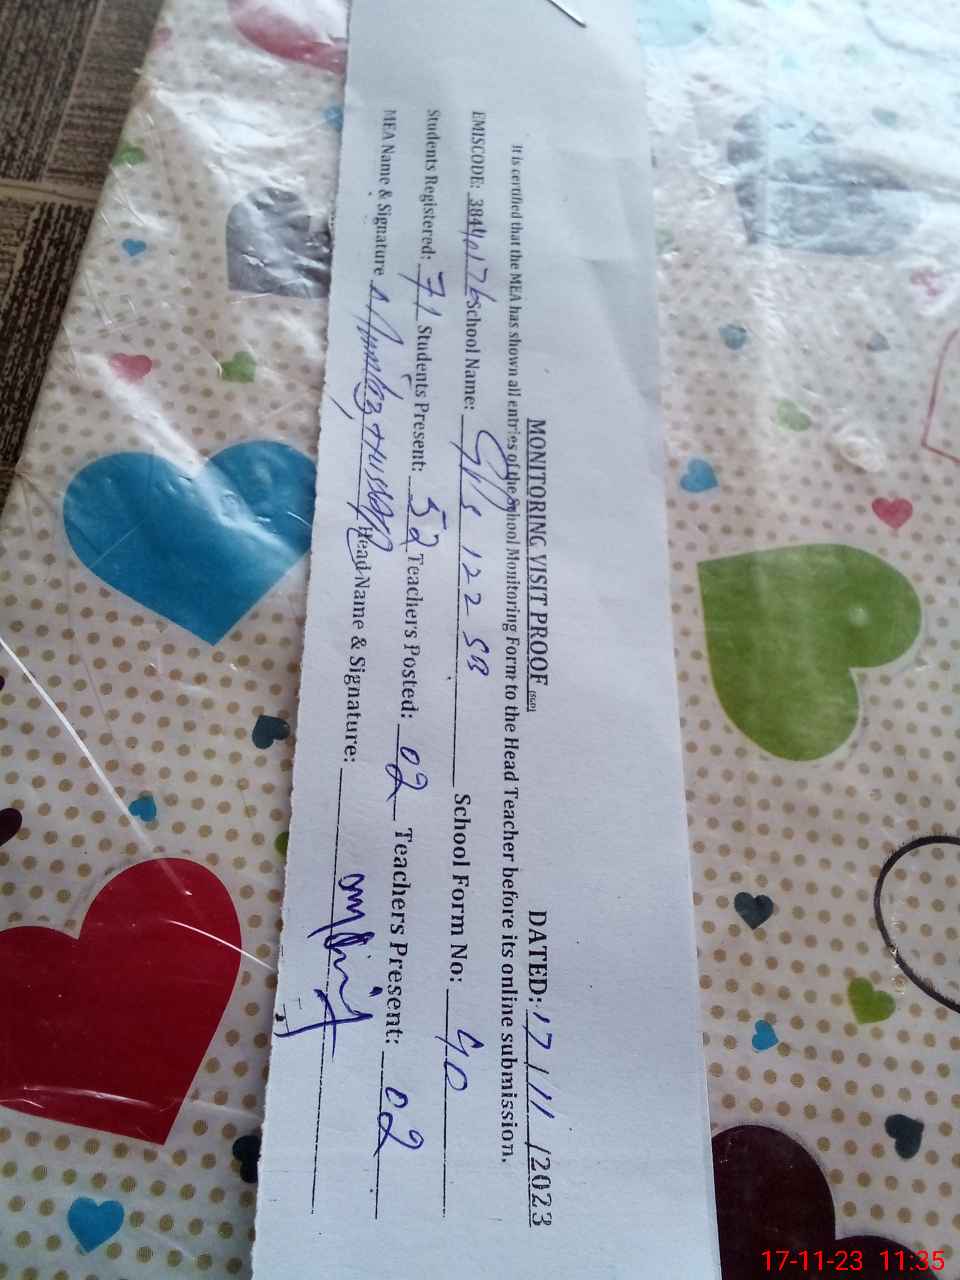 MONITORING VISIT PROOF (SGD) DATED: 17/11/2023
It is certified that the MEA has shown all entries of the School Monitoring Form to the Head Teacher before its online submission.
EMISCODE: 38440176 School Name: GPS 122 SB School Form No.: 40
Students Registered: 71 Students Present: 52 Teachers Posted: 02 Teachers Present: 02
MEA Name & Signature Hussain Head Name & Signature:
17-11-23 11:35